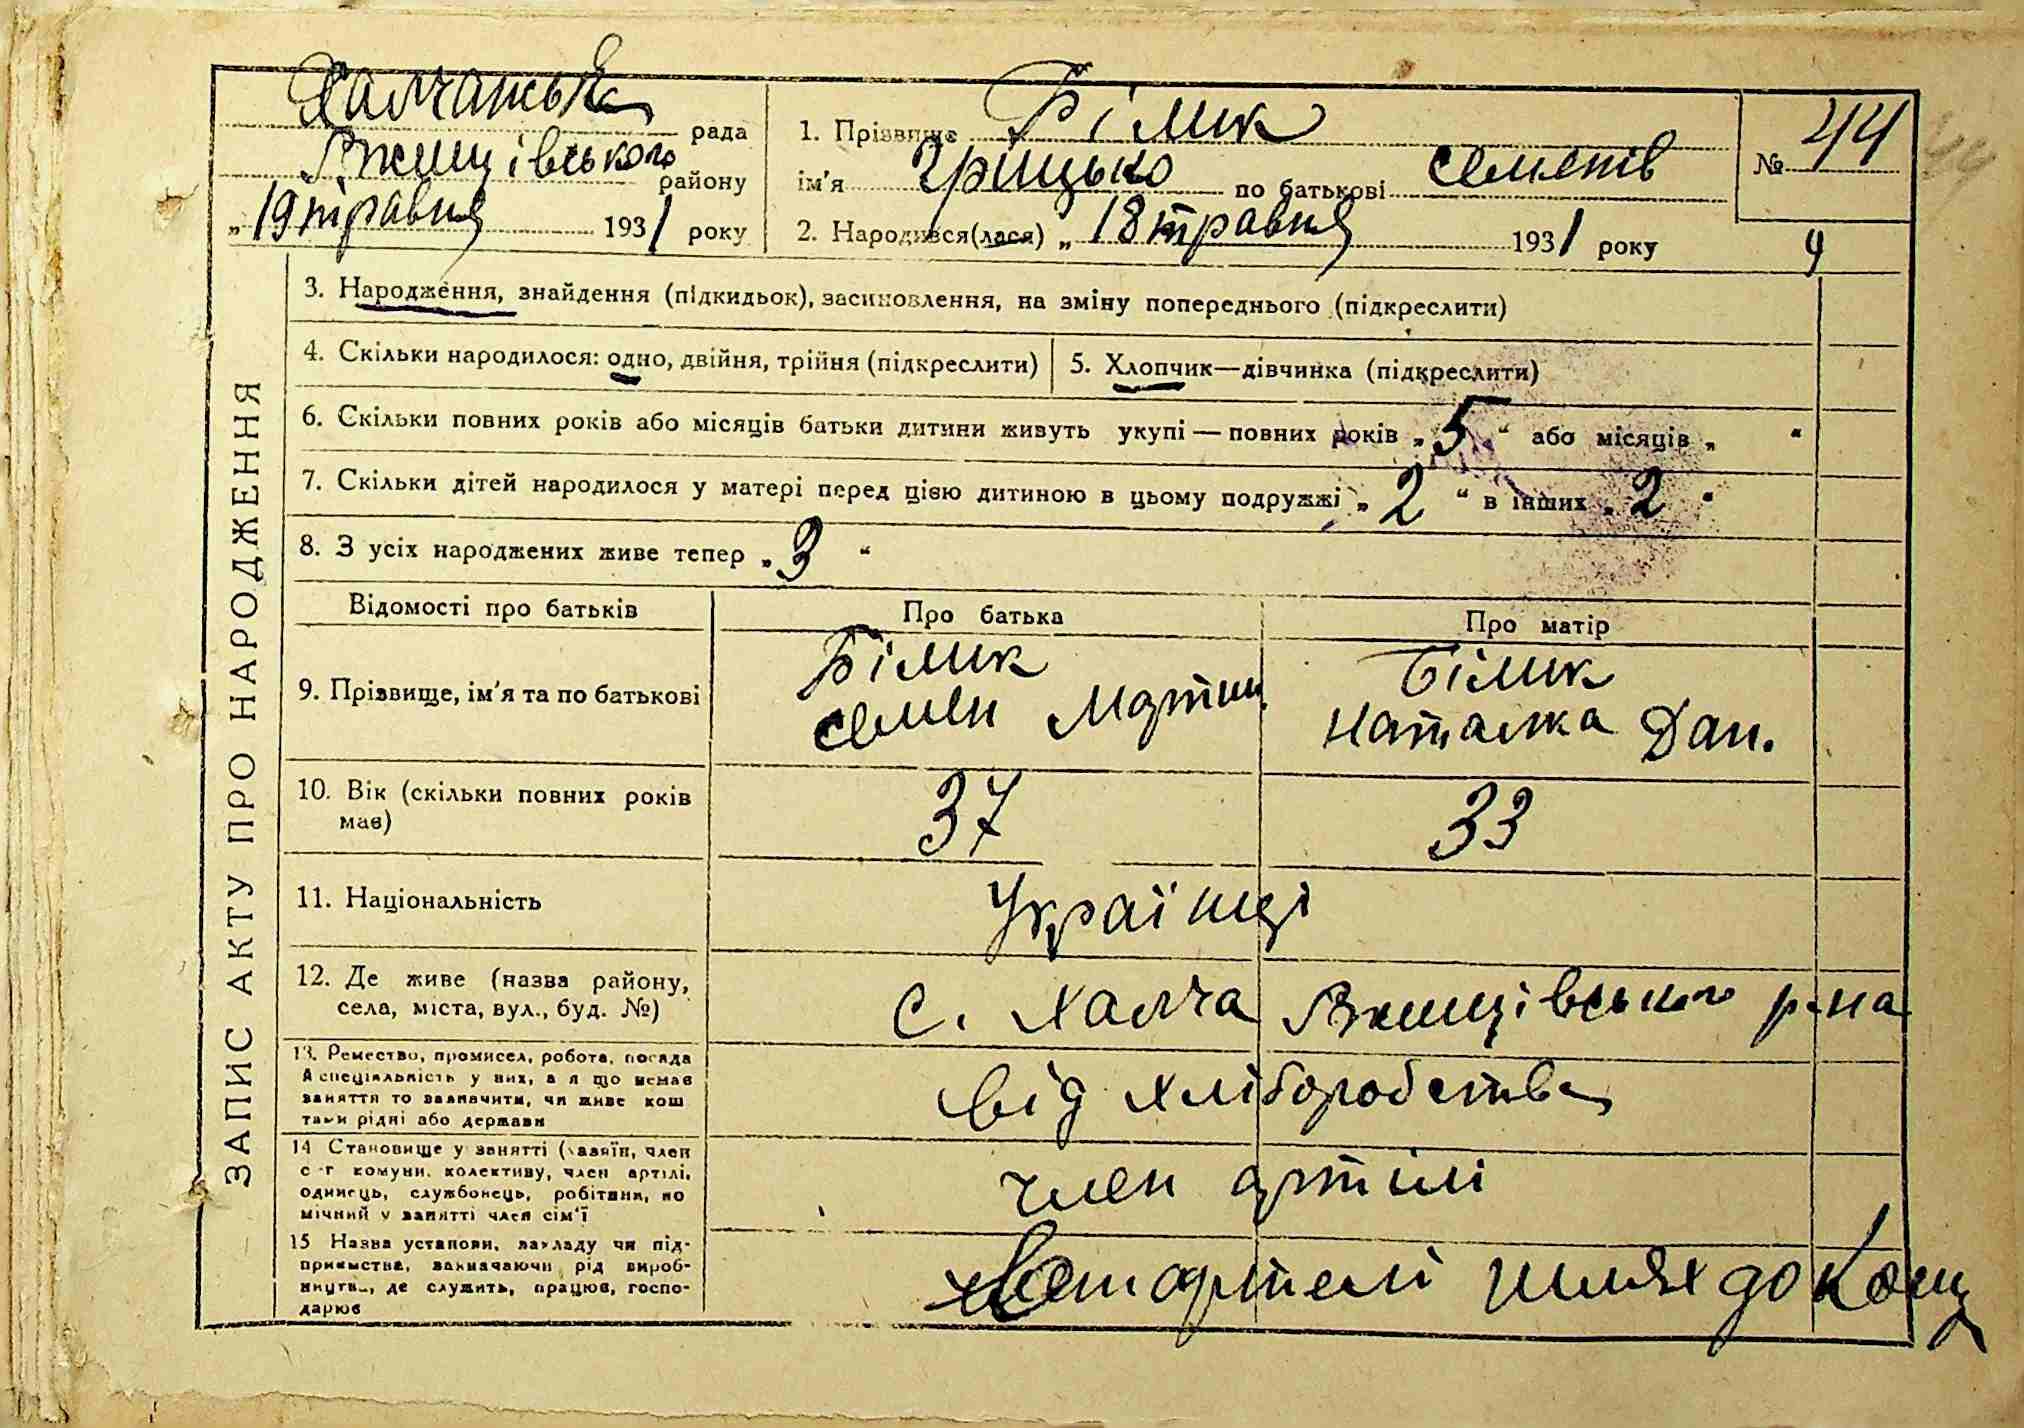 Халчанська рада
Ржищівського району
„19 травня 1931 року
1. Прізвище Білик
ім'я Грицько по батькові Семенів
2. Народився(лася) „18 травня 1931 року
№ 44
ЗАПИС АКТУ ПРО НАРОДЖЕННЯ
3. Народження, знайдення (підкидьок), засиновлення, на зміну попереднього (підкреслити)
4. Скільки народилося: одно, двійня, трійня (підкреслити)
5. Хлопчик—дівчинка (підкреслити)
6. Скільки повних років або місяців батьки дитини живуть укупі — повних років „5“ або місяців „ “
7. Скільки дітей народилося у матері перед цією дитиною в цьому подружжі „2“ в інших „2“
8. З усіх народжених живе тепер „3“
Відомості про батьків
Про батька
Про матір
9. Прізвище, ім'я та по батькові
Білик
Семен Мартин.
Білик
Наталка Дан.
10. Вік (скільки повних років
має)
37
33
11. Національність
Українці
12. Де живе (назва району,
села, міста, вул., буд. №)
с. Халча Ржищівського р-на
13. Ремество, промисел, робота, посада
й спеціяльність у них, а я що немає
заняття то зазначити, чи живе кош
тами рідні або держави
від хліборобства
14 Становище у занятті (хазяїн, член
с-г комуни, колективу, член артілі,
одинець, службовець, робітник, по
мічний у занятті член сім'ї
член артілі
15 Назва установи, закладу чи під-
приємства, зазначаючи рід вироб-
ництва, де служить, працює, госпо-
дарює
артелі шлях до